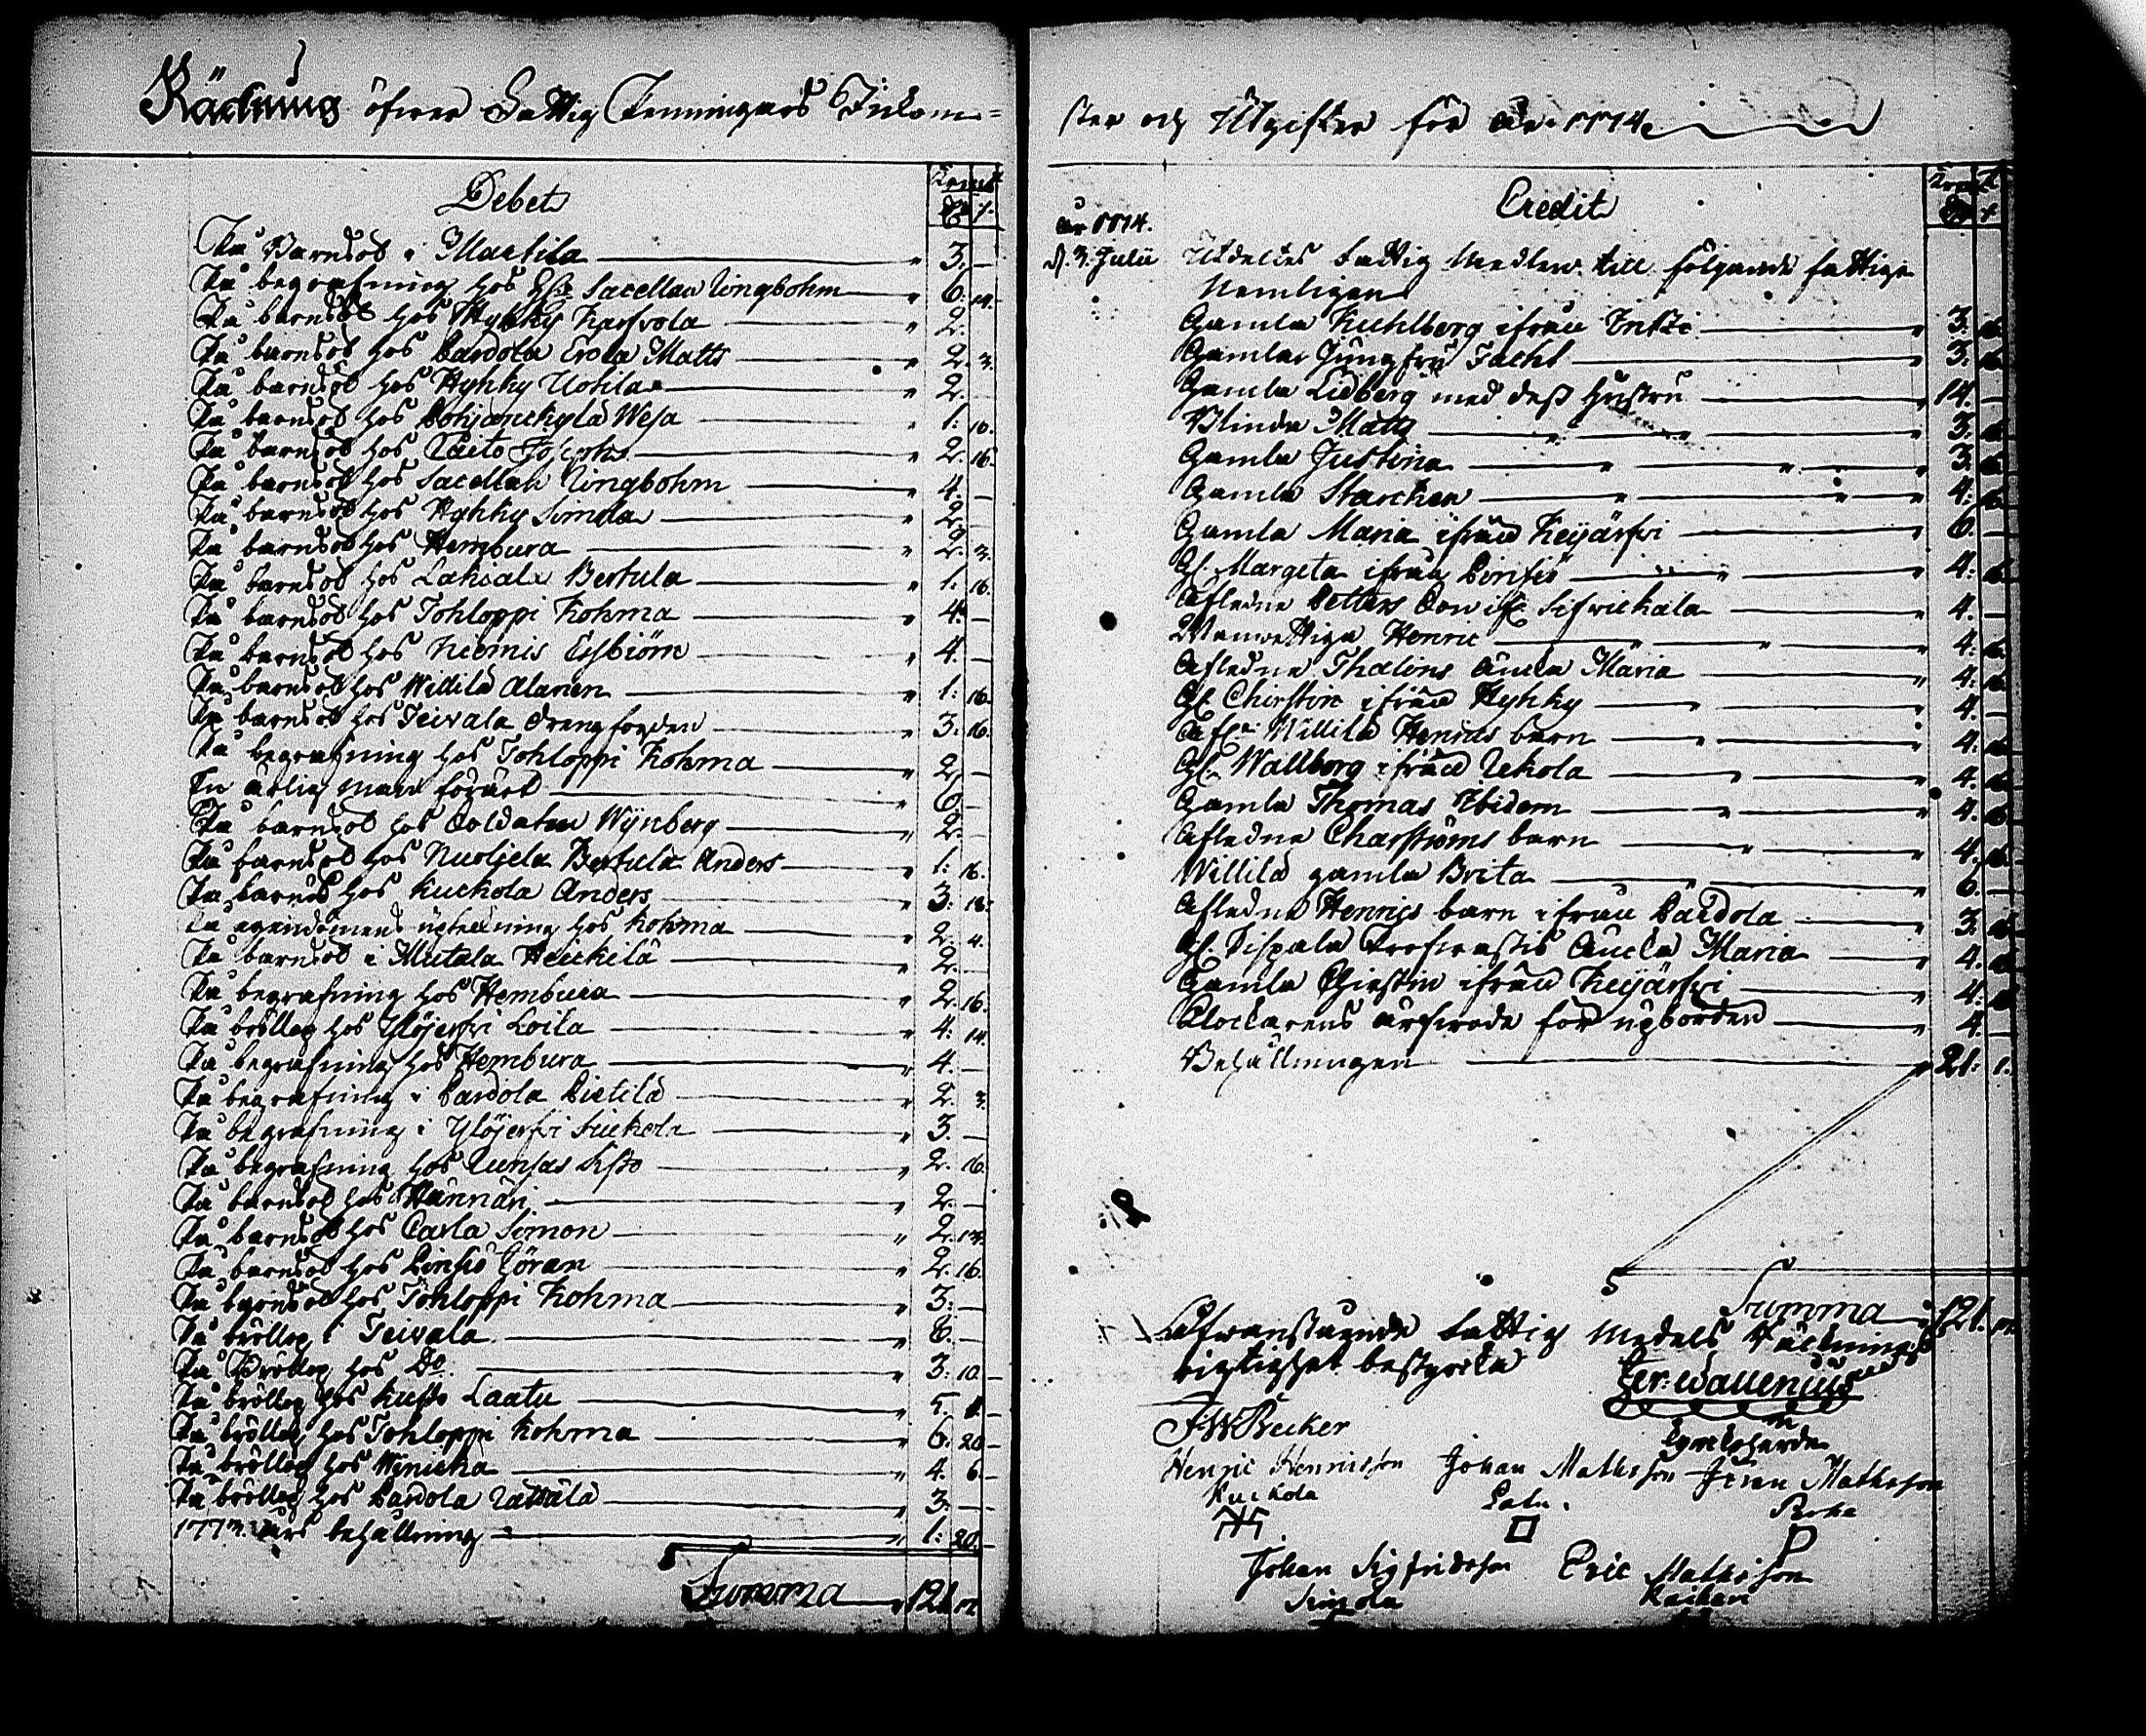 Räckning öfver Fattig Penningars Inkom=
ster och Utgifter för år 1774.
Debet
På Barnsöl i Martila 3. —
På begrafning hos H:r Sacellan Ringbohm 6: 14.
På barnsöl hos Hyhky Karfvola 2.
På barnsöl hos Pardola Erola Matts 2. 3.
På barnsöl hos Hyhky Uotila 2. —
På barnsöl hos Pohjanckylä Wesa 1: 16.
På barnsöl hos Raito Josephs 2. 16.
På barnsöl hos Sacellan Ringbohm 4. —
På barnsöl hos Hyhky Simola 2. —
På barnsöl hos Hembura 2. 3.
På barnsöl hos Lakiala Bertula 1: 16.
På barnsöl hos Tohloppi Kohma 4. —
På barnsöl hos Niemis Essbiörn 4. —
På barnsöl hos Widilä Alanen 1: 16.
På barnsöl hos Teivala 3. 16.
På begrafning hos Tohloppi Kohma 2. —
En ärlig man förärt 6. —
På barnsöl hos Soldaten Wijnberg 2. —
På barnsöl hos Nuoliela Bertula Anders 1: 16.
På barnsöl hos Kuckola Anders 3: 18.
På egendomens upteckning hos Kohma 2. 4.
På barnsöl i Mutala Heickilä 2. —
På begrafning hos Hembura 2. 16.
På bröllop hos Ylöjerfvi Loila 4: 14.
På begrafning hos Hembura 4. —
På begrafning i Pardola Pietilä 2. 3.
På begrafning i Ylöjerfvi Kuckola 3. —
På begrafning hos Runsas 2. 16.
På barnsöl hos Hännäri 2. —
På barnsöl hos Carla Simon 2.
På barnsöl hos Pinsiö Göran 2. 16.
På barnsöl hos Tohloppi Kohma 3: —
På bröllop i Teivala 6. —
På Bröllop hos D:o 3: 10.
På bröllop hos Kusto Laatu 5.
På bröllop hos Tohloppi Kohma 6: 20.
På bröllop hos Winicka 4. 6.
På bröllop hos Pardola Rattala 3. —
1773. års behållning 1: 20.
Summa 121
Credit
år 1774.
d. 3. Julii Utdeltes Fattig Medlen till följande fattige
Nemligen
Gamla Kuhlberg ifrån 3.
Gamla Jungfru Facht 3.
Gamla Lidberg med dess Hustru 14. —
Blinda Matts 3.
Gamla Justina 3.
Gamla Starcken 4.
Gamla Maria ifrån Keijärfvi 6. —
Gl. Margeta ifrån Pinsiö 4:
Afledne Petters Son if: Sifwickala 4. —
Wanwettige Henric 4:
Afledne Thalins Encka Maria 4.
Gl. Chirstin ifrån Hyhky 4. —
Afl: Willilä Henrics barn 4:
Gl. Wallborg ifrån Uckola 4.
Gamla Thomas Ibidem 4.
Afledne Charströms barn 4.
Willilä gamla Brita 6. —
Afledne Henrics barn ifrån Pardola 3.
Gl. Encka Maria 4.
Gamla Chirstin ifrån Keijärfvi 4:
Clockarens arfwode för upbörden 4. —
Behållningen 21: 1.
Summa 121.
Ofvanstående Fattig Medels Räcknings
rigtighet bestyrcka
Jer: Wallenius
FWBecker
Kyrckoherde
Henric Henricsson Johan Mathsson Johan Mathsson
Kuckola
P
Johan Sigfridsson Eric Mathsson
Simola